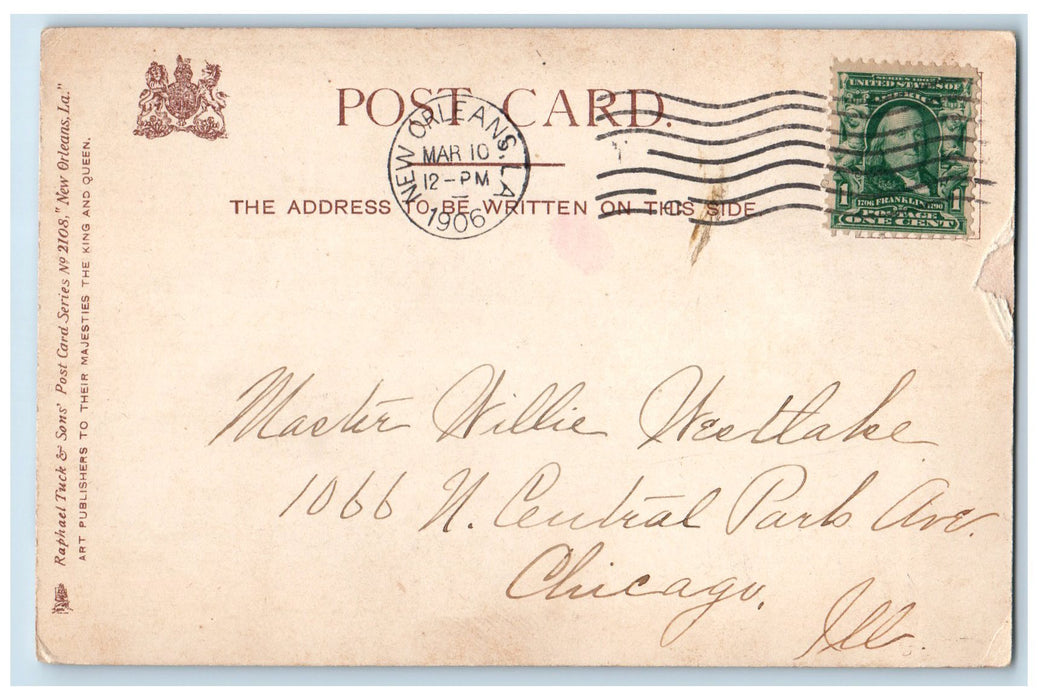 POST CARD.
THE ADDRESS TO BE WRITTEN ON THIS SIDE
NEW ORLEANS, LA.
MAR 10
12-PM
1906
SERIES 1902
UNITED STATES OF
AMERICA
1 1706 FRANKLIN 1790 1
POSTAGE
ONE CENT
Raphael Tuck & Sons' Post Card Series Nº 2108, "New Orleans, La."
ART PUBLISHERS TO THEIR MAJESTIES THE KING AND QUEEN.
Master Willie Westlake
1066 N. Central Park Ave.
Chicago,
Ill.